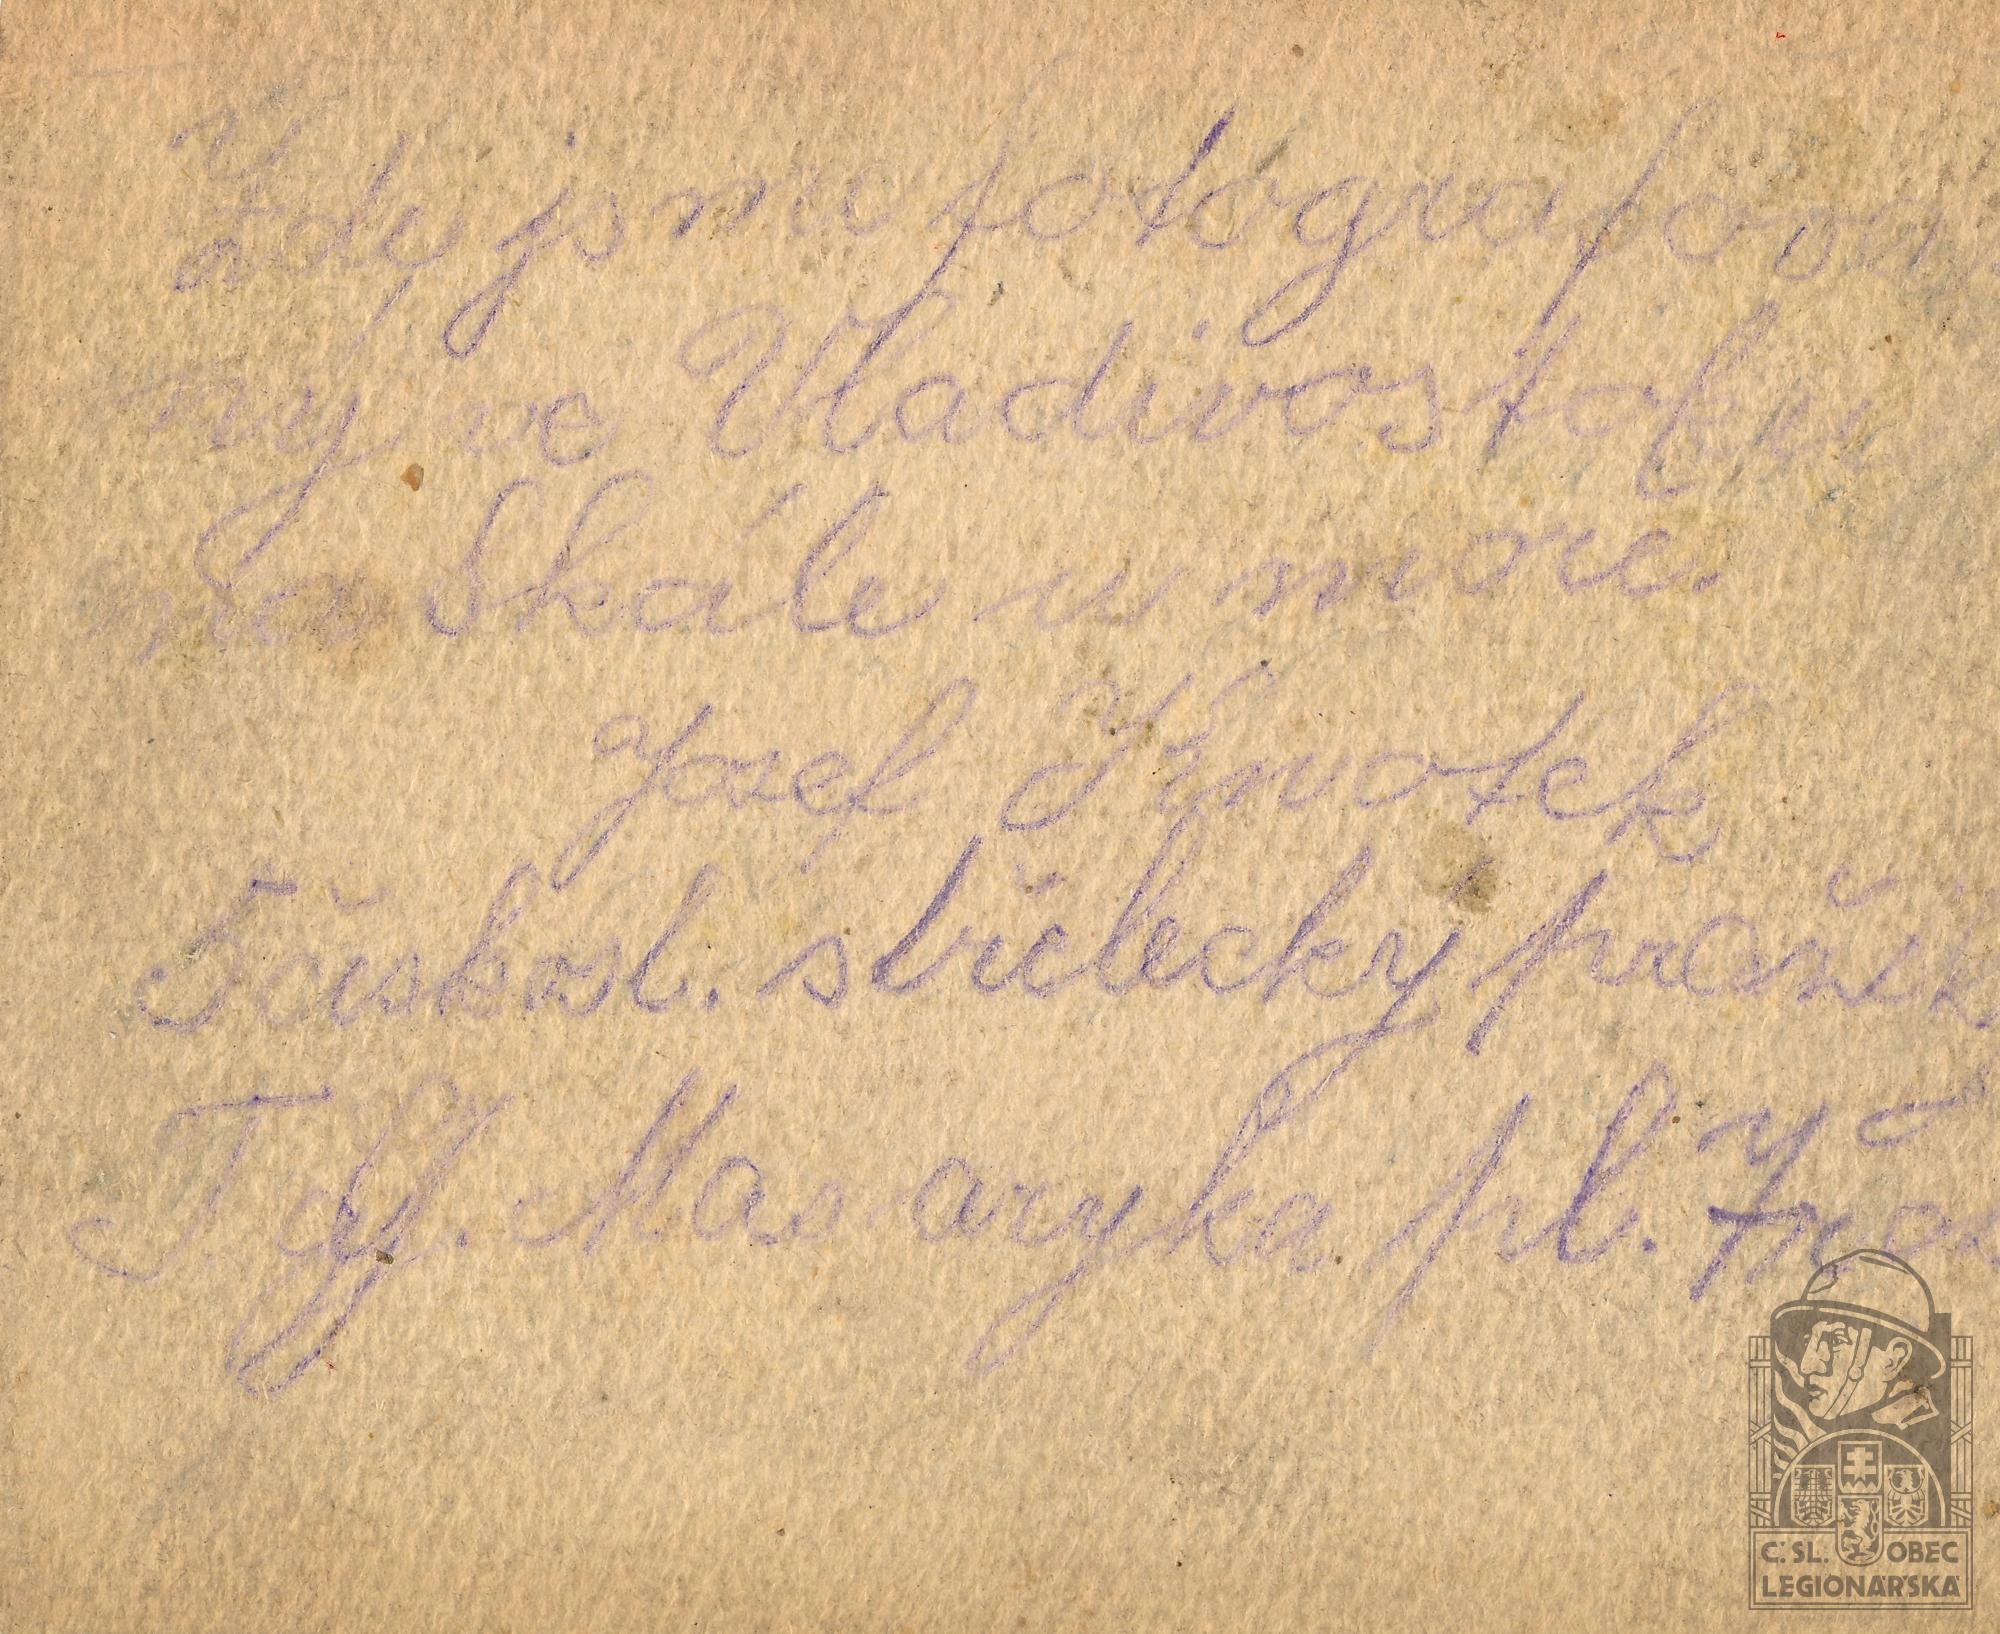 Zdy jsme fotografová
ný ve Vladivostoku
na Skále u moře.
Josef Knotek
1 česko sl. střelecký
T. G. Masaryka pl.
Č. SL. OBEC
LEGIONÁŘSKÁ